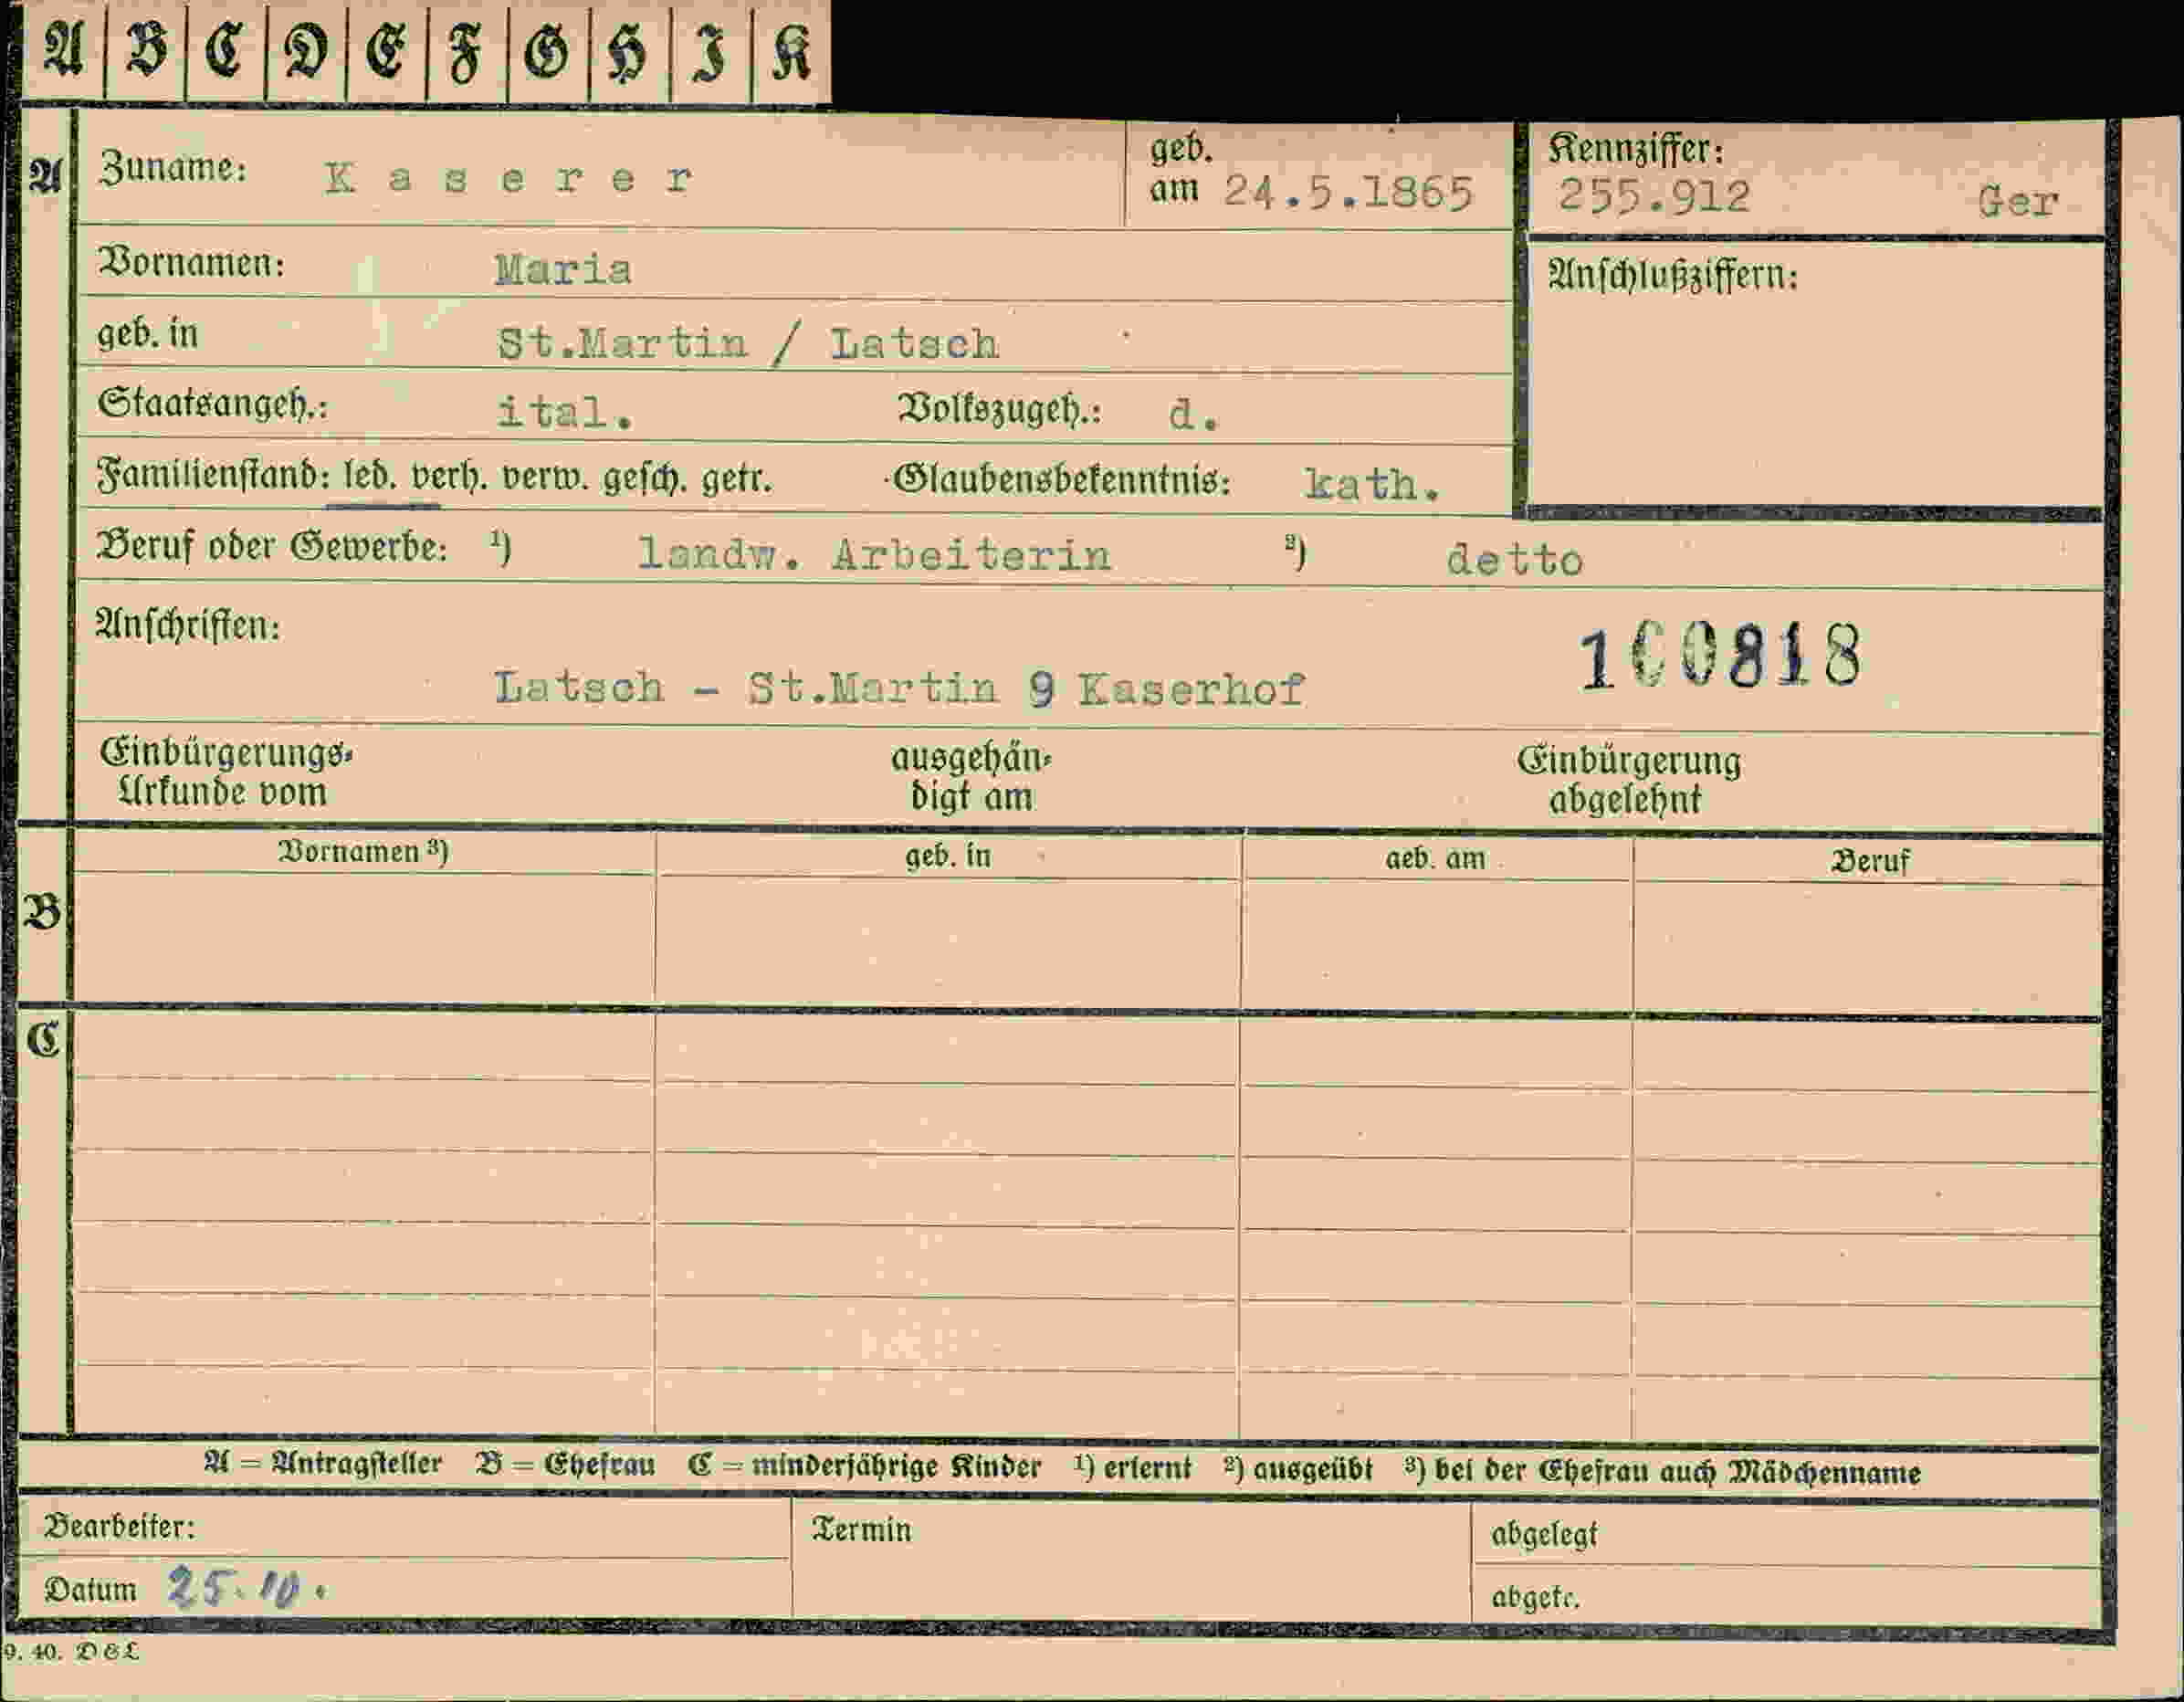 A B C D E F G H I K
A Zuname: Kaserer geb. am 24.5.1865 Kennziffer: 255.912 Ger
Vornamen: Maria Anschlußziffern:
geb. in St.Martin / Latsch
Staatsangeh.: ital. Volkszugeh.: d.
Familienstand: led. verh. verw. gesch. getr. Glaubensbekenntnis: kath.
Beruf oder Gewerbe: ¹) landw. Arbeiterin ²) detto
Anschriften: 100818
Latsch - St.Martin 9 Kaserhof
Einbürgerungs- ausgehän- Einbürgerung
Urkunde vom digt am abgelehnt
Vornamen ³) geb. in geb. am Beruf
B
C
A = Antragsteller B = Ehefrau C = minderjährige Kinder ¹) erlernt ²) ausgeübt ³) bei der Ehefrau auch Mädchenname
Bearbeiter: Termin abgelegt
Datum 25.10. abgetr.
9. 40. D&L